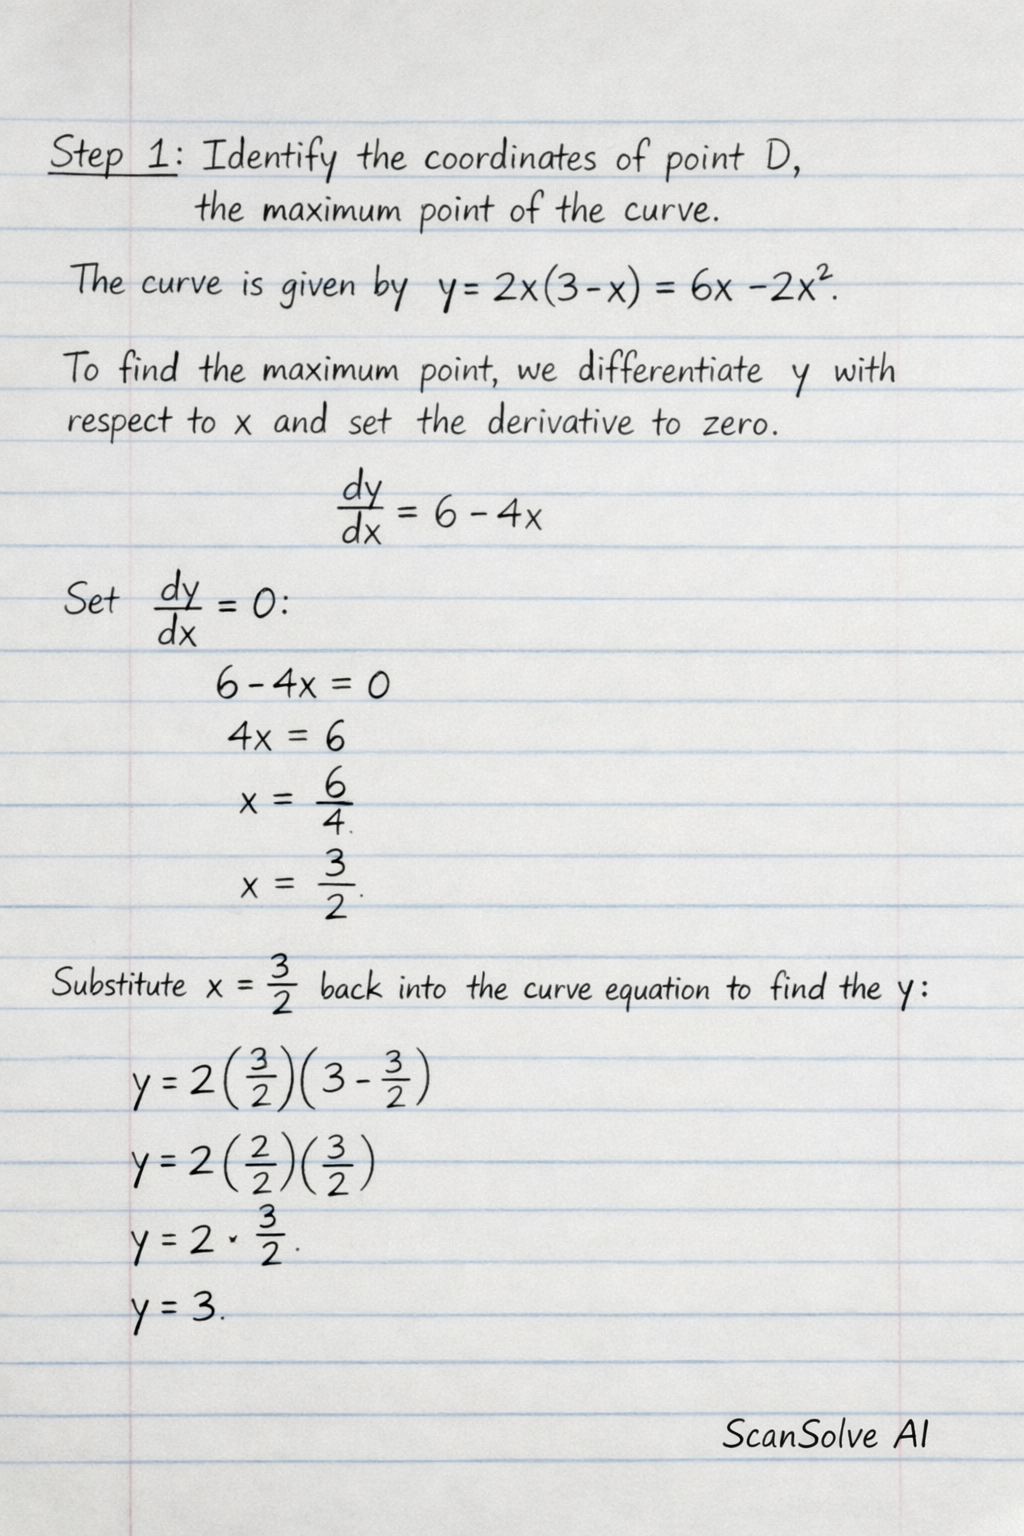 Step 1: Identify the coordinates of point D,
the maximum point of the curve.
The curve is given by y = 2x(3-x) = 6x - 2x².
To find the maximum point, we differentiate y with
respect to x and set the derivative to zero.
dy/dx = 6 - 4x
Set dy/dx = 0:
6 - 4x = 0
4x = 6
x = 6/4.
x = 3/2.
Substitute x = 3/2 back into the curve equation to find the y:
y = 2(3/2)(3 - 3/2)
y = 2(2/2)(3/2)
y = 2 · 3/2.
y = 3.
ScanSolve AI